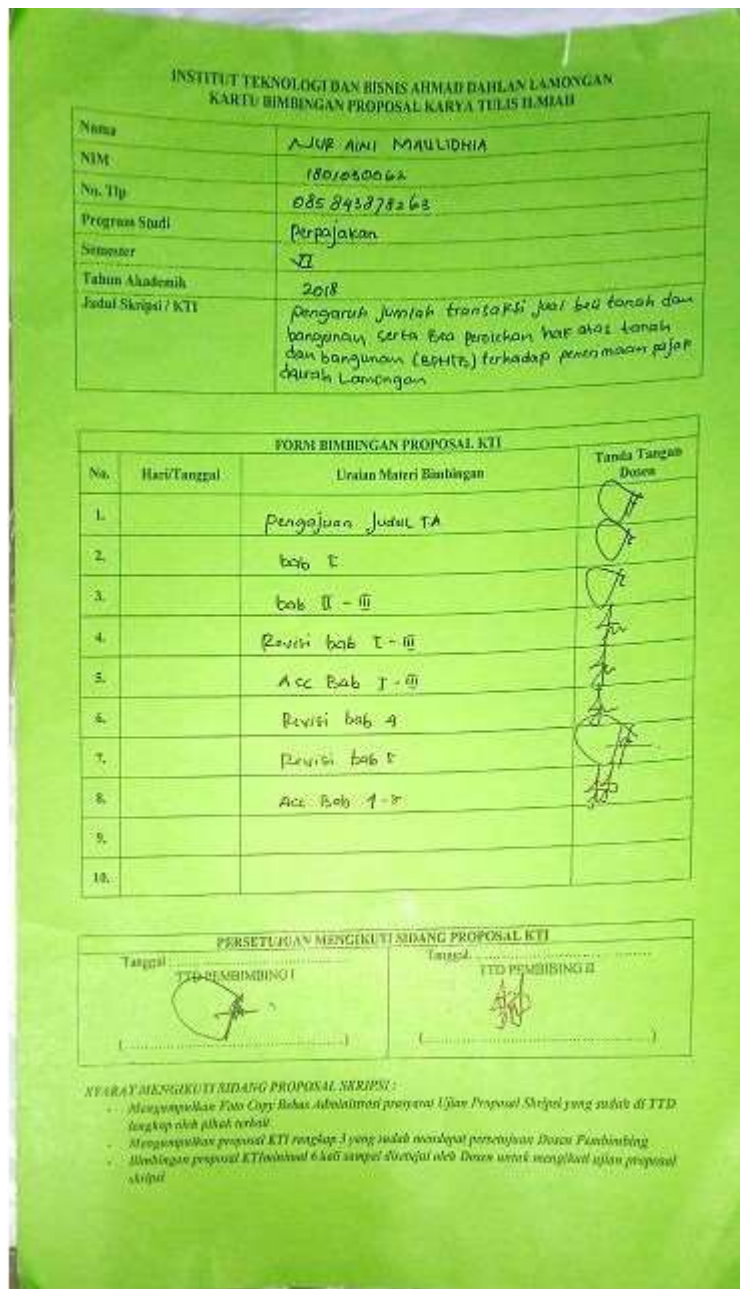 INSTITUT TEKNOLOGI DAN BISNIS AHMAD DAHLAN LAMONGAN
KARTU BIMBINGAN PROPOSAL KARYA TULIS ILMIAH
Nama NUR AINI MAULIDHIA
NIM 1801030062
No. Tlp 085843878263
Program Studi Perpajakan
Semester VI
Tahun Akademik 2018
Judul Skripsi / KTI Pengaruh jumlah transaksi jual beli tanah dan
bangunan serta Bea perolehan hak atas tanah
dan bangunan (BPHTB) terhadap penerimaan pajak
daerah Lamongan
FORM BIMBINGAN PROPOSAL KTI
No. Hari/Tanggal Uraian Materi Bimbingan Tanda Tangan
Dosen
1. Pengajuan Judul TA
2. bab I
3. bab II - III
4. Revisi bab I - III
5. Acc Bab I - III
6. Revisi bab 4
7. Revisi bab 5
8. Acc Bab 4-5
9.
10.
PERSETUJUAN MENGIKUTI SIDANG PROPOSAL KTI
Tanggal Tanggal
TTD PEMBIMBING I TTD PEMBIBING II
(........................................) (........................................)
SYARAT MENGIKUTI SIDANG PROPOSAL SKRIPSI :
- Mengumpulkan Foto Copy Bebas Administrasi prasyarat Ujian Proposal Skripsi yang sudah di TTD
lengkap oleh pihak terkait
- Mengumpulkan proposal KTI rangkap 3 yang sudah mendapat persetujuan Dosen Pembimbing
- Bimbingan proposal KTI minimal 6 kali sampai disetujui oleh Dosen untuk mengikuti ujian proposal
skripsi